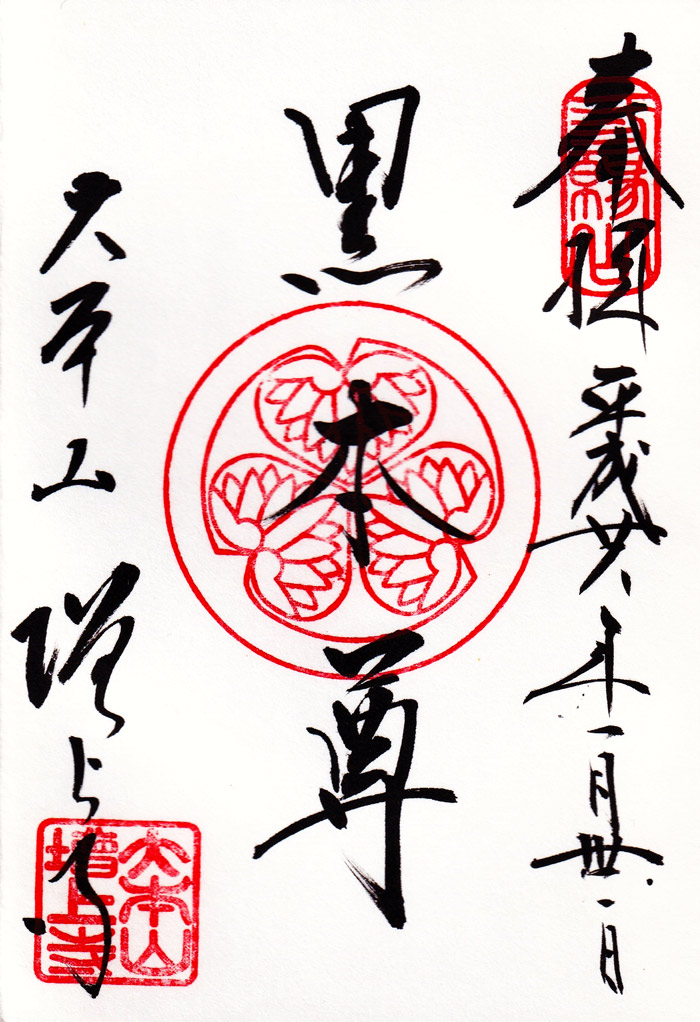 奉拝 平成廿八年一月卅一日
三縁山
黒本尊
大本山 増上寺
大本山
増上寺